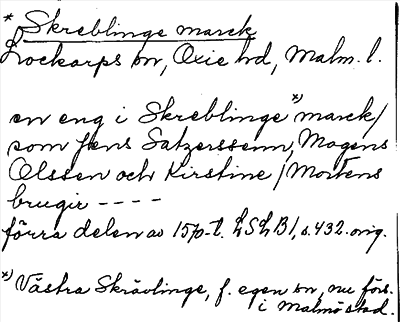 * Skreblinge marck
Lockarps sn, Oxie hd, Malm. l.
en eng i Skreblinge *) marck/
som Jens Satzerssenn, Mogens
Olssen och Kirstine / Mortens
brugir ----
förra delen av 15p-t. LSLB1, s. 432. orig.
*) Västra Skrävlinge, f. egen sn, nu förs.
i Malmö stad.